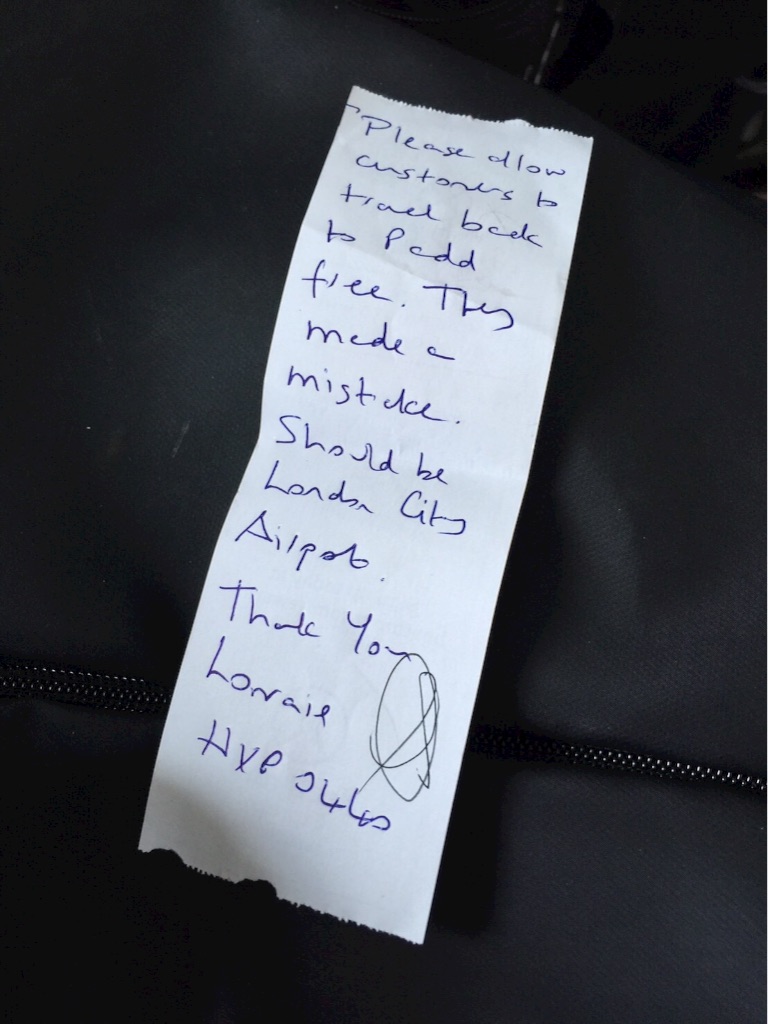 Please allow
customers to
travel back
to Padd
free. They
made a
mistake.
Should be
London City
Airport.
Thank You
Lorraie
HXP